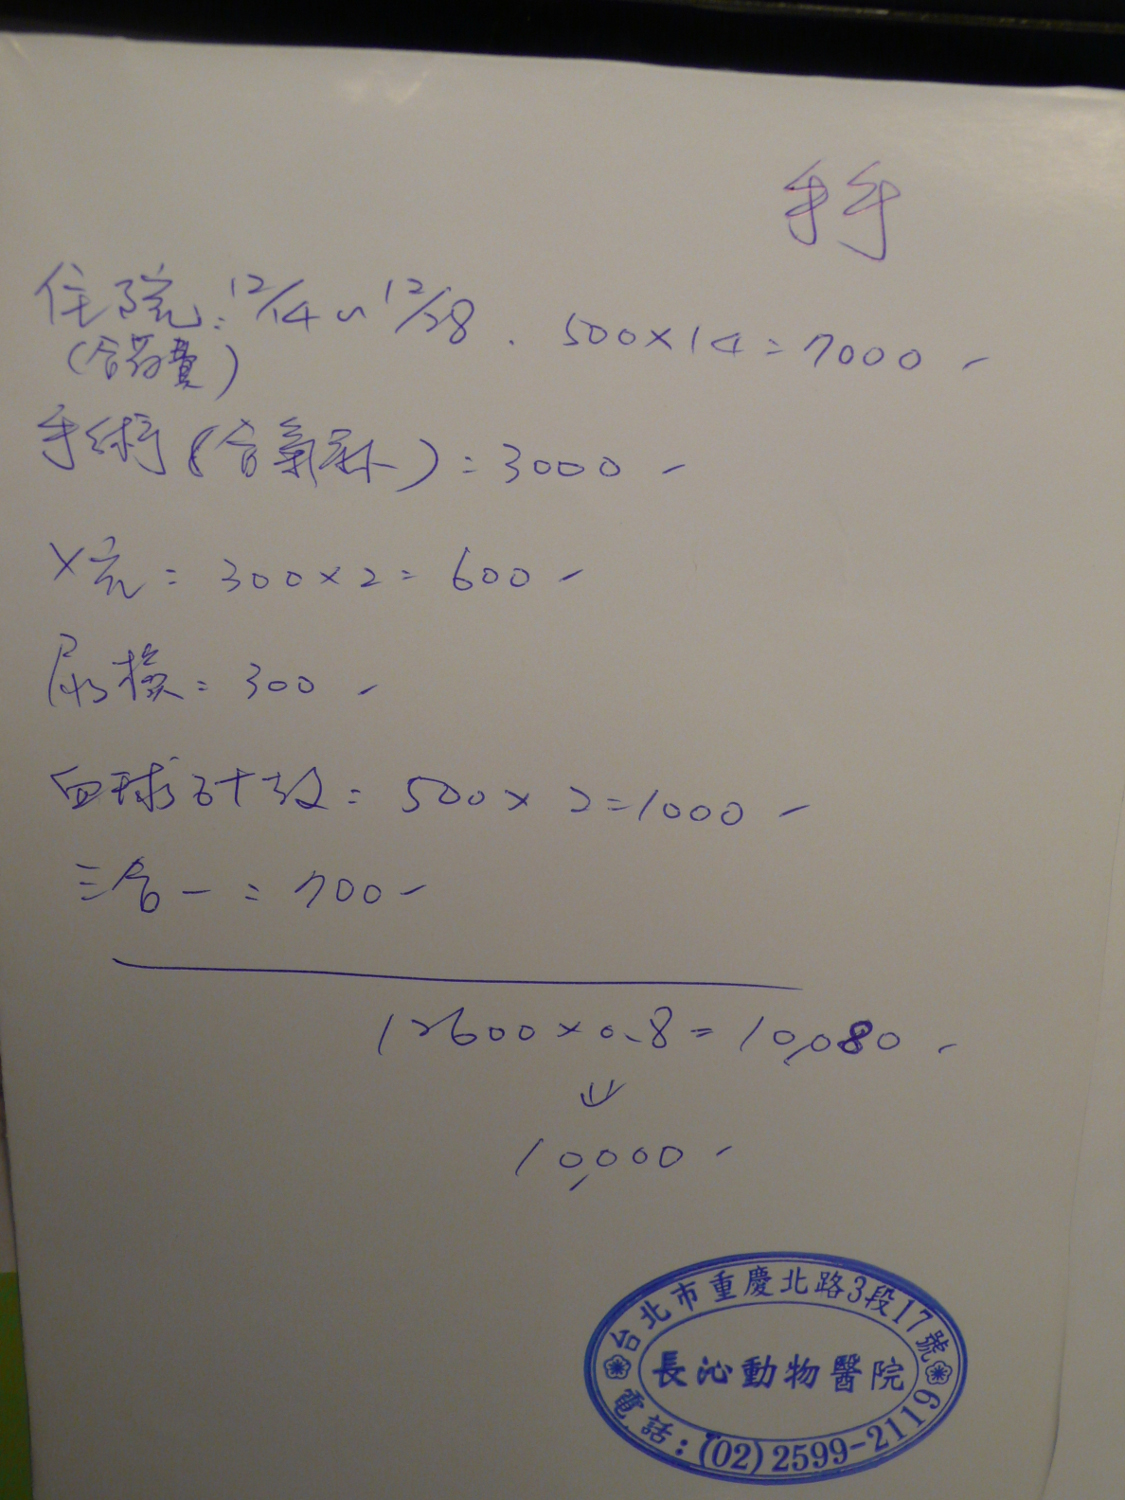 手手
住院:12/14~12/28. 500×14=7000-
(含葯費)
手術(含氣麻):3000-
X光=300×2=600-
尿檢=300-
血球計数=500×2=1000-
三合一=700-
12600×0.8=10,080-
↓
10,000-
台北市重慶北路3段17號
長沁動物醫院
電話:(02)2599-2119